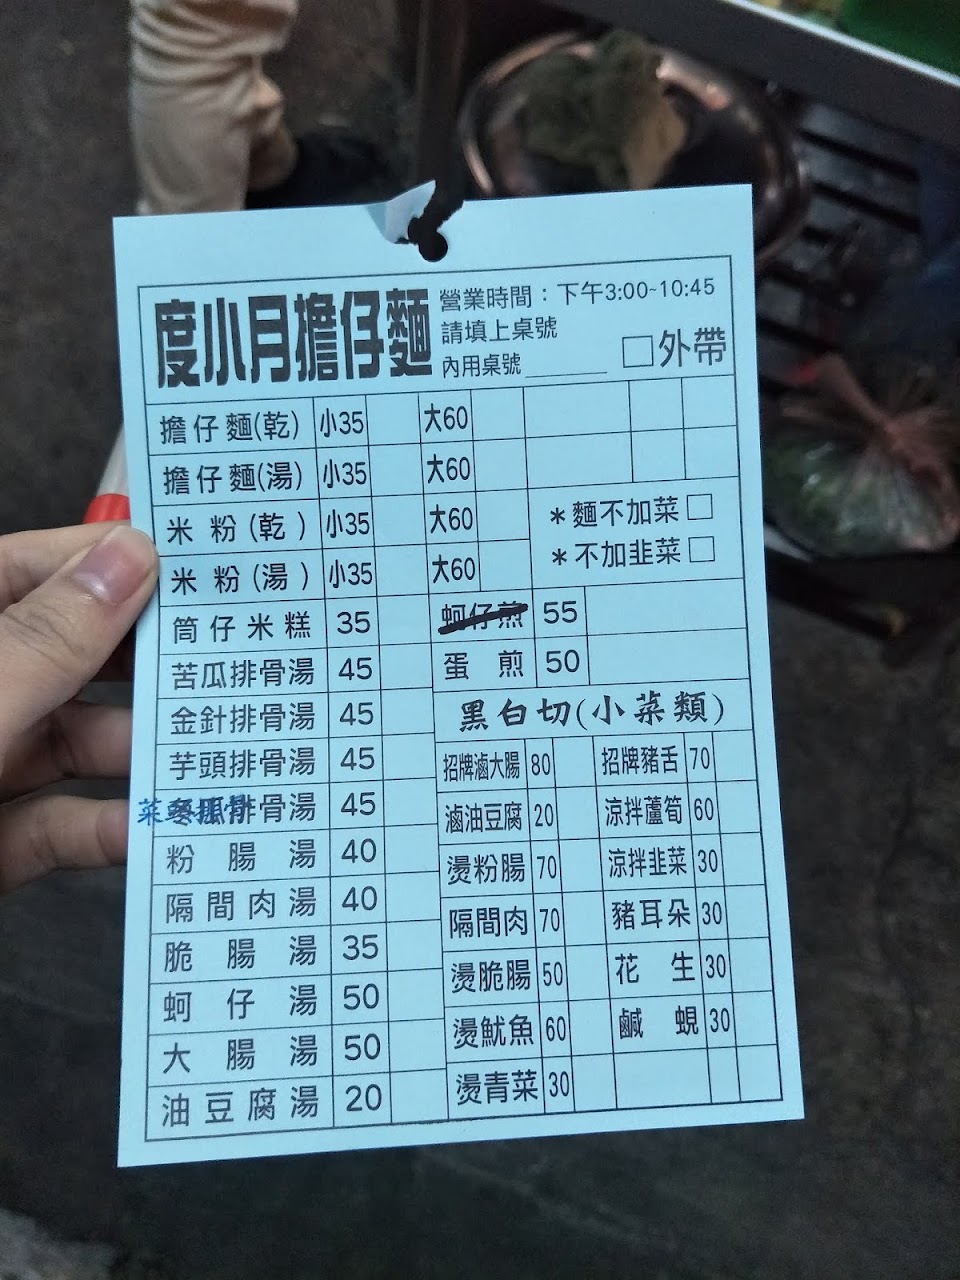 度小月擔仔麵
營業時間：下午3:00~10:45
請填上桌號
內用桌號______
□外帶
擔仔麵(乾) 小35 大60
擔仔麵(湯) 小35 大60
米粉(乾) 小35 大60
米粉(湯) 小35 大60
＊麵不加菜□
＊不加韭菜□
筒仔米糕 35
苦瓜排骨湯 45
金針排骨湯 45
芋頭排骨湯 45
冬瓜排骨湯 45
菜頭排骨
粉腸湯 40
隔間肉湯 40
脆腸湯 35
蚵仔湯 50
大腸湯 50
油豆腐湯 20
蚵仔煎 55
蛋煎 50
黑白切(小菜類)
招牌滷大腸 80 招牌豬舌 70
滷油豆腐 20 涼拌蘆筍 60
燙粉腸 70 涼拌韭菜 30
隔間肉 70 豬耳朵 30
燙脆腸 50 花生 30
燙魷魚 60 鹹蜆 30
燙青菜 30